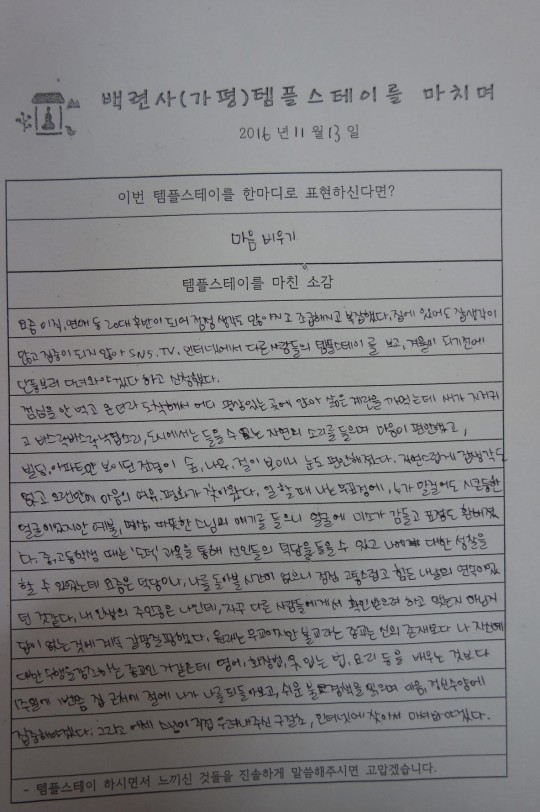 백련사(가평)템플스테이를 마치며
2016년 11월 13일
이번 템플스테이를 한마디로 표현하신다면?
마음 비우기
템플스테이를 마친 소감
요즘 이직, 연애 등 20대 후반이 되어 점점 생각도 많아지고 조급해지고 복잡했다. 집에 있어도 잡생각이
많고 집중이 되지 않아 SNS, TV, 인터넷에서 다른 사람들의 템플스테이를 보고, 겨울이 되기전에
단풍보러 다녀와야겠다 하고 신청했다.
점심을 안 먹고 온 터라 도착해서 어디 편한 곳에 앉아 삶은 계란을 까먹는데 새가 지저귀
고 바스락바스락 낙엽소리, 도시에서는 들을 수 없는 자연의 소리를 들으며 마음이 편안했고,
빌딩, 아파트만 보이던 전경이 숲, 나무, 길이 보이니 눈도 편안해졌다. 자연스럽게 잡생각도
없고 오랜만에 마음의 여유, 평화가 찾아왔다. 일할 때 나는 무표정에, 누가 말걸어도 시큰둥한
얼굴이었지만 예불, 명상, 따뜻한 스님의 얘기를 들으니 얼굴에 미소가 감돌고 표정도 환해졌
다. 중,고등학생 때는 '도덕' 과목을 통해 선인들의 덕담을 들을 수 있고 나에 대한 성찰을
할 수 있었는데 요즘은 덕담이나, 나를 돌아볼 시간이 없으니 점점 고통스럽고 힘든 나날의 연속이었
던 것같다. 내 인생의 주인공은 나인데, 자꾸 다른 사람들에게서 확인받으려 하고
답이 없는 것에 계속 갈팡질팡했다. 원래는 무교이지만 불교라는 종교는 신의 존재보다 나 자신에
대한 수행을 강조하는 종교인 거같은데 영어, 화장법, 요리 등을 배우는 것보다
1주일에 1번쯤 집 근처에 절에 나가 나를 되돌아보고, 쉬운 불교경책을 읽으며 마음, 정신수양에
집중해야겠다. 그리고 어제 스님이 직접 우려내주신 구절초, 인터넷에 찾아서 마셔봐야겠다.
- 템플스테이 하시면서 느끼신 것들을 진솔하게 말씀해주시면 고맙겠습니다.